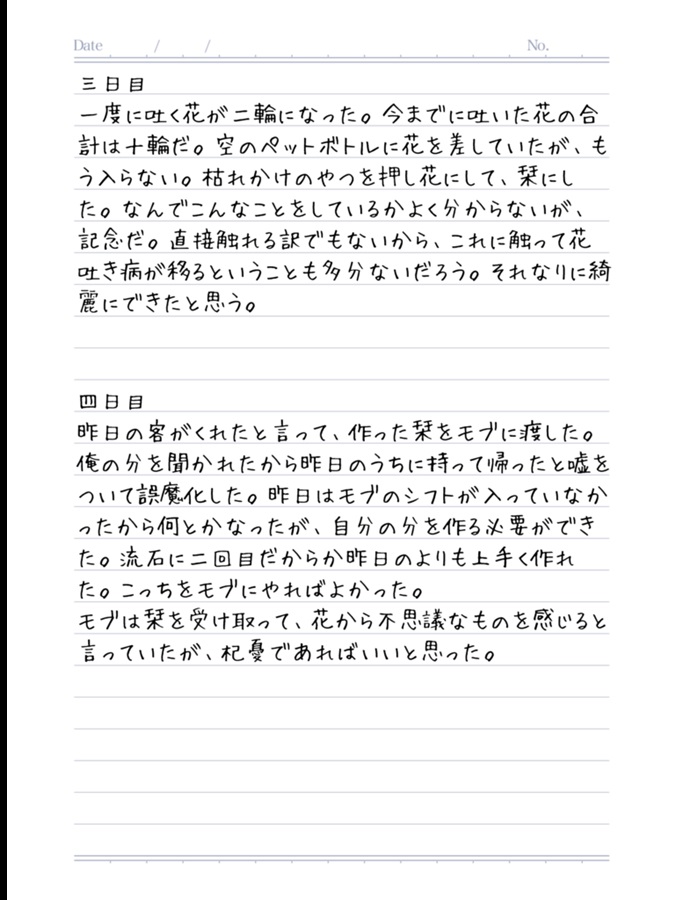 Date / /
No.
三日目
一度に吐く花が二輪になった。今までに吐いた花の合
計は十輪だ。空のペットボトルに花を差していたが、も
う入らない。枯れかけのやつを押し花にして、栞にし
た。なんでこんなことをしているかよく分からないが、
記念だ。直接触れる訳でもないから、これに触って花
吐き病が移るということも多分ないだろう。それなりに綺
麗にできたと思う。
四日目
昨日の客がくれたと言って、作った栞をモブに渡した。
俺の分を聞かれたから昨日のうちに持って帰ったと嘘を
ついて誤魔化した。昨日はモブのシフトが入っていなか
ったから何とかなったが、自分の分を作る必要ができ
た。流石に二回目だからか昨日のよりも上手く作れ
た。こっちをモブにやればよかった。
モブは栞を受け取って、花から不思議なものを感じると
言っていたが、杞憂であればいいと思った。